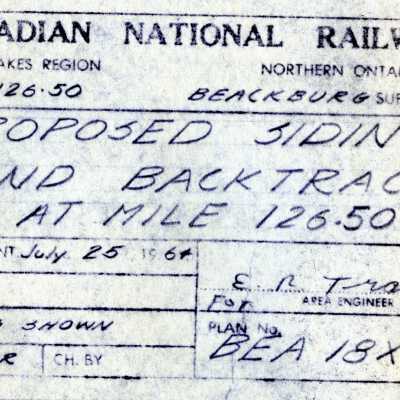 ADIAN NATIONAL RAILW
AKES REGION NORTHERN ONTA
126.50 BEACKBURG SU
OPOSED SIDIN
ND BACKTRAC
AT MILE 126.50
NT July 25 1964
E R Tra
For AREA ENGINEER
S SHOWN PLAN No.
R CH. BY BEA 18X